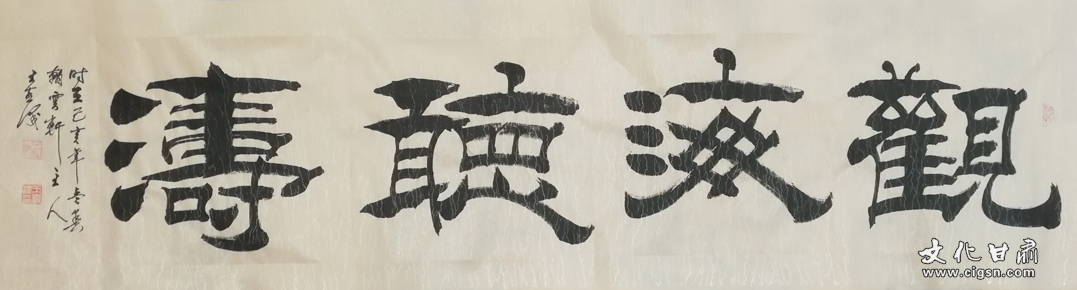 觀海聽濤
時在己亥年冬月
翰雲軒主人
文化甘肃
www.cigsn.com